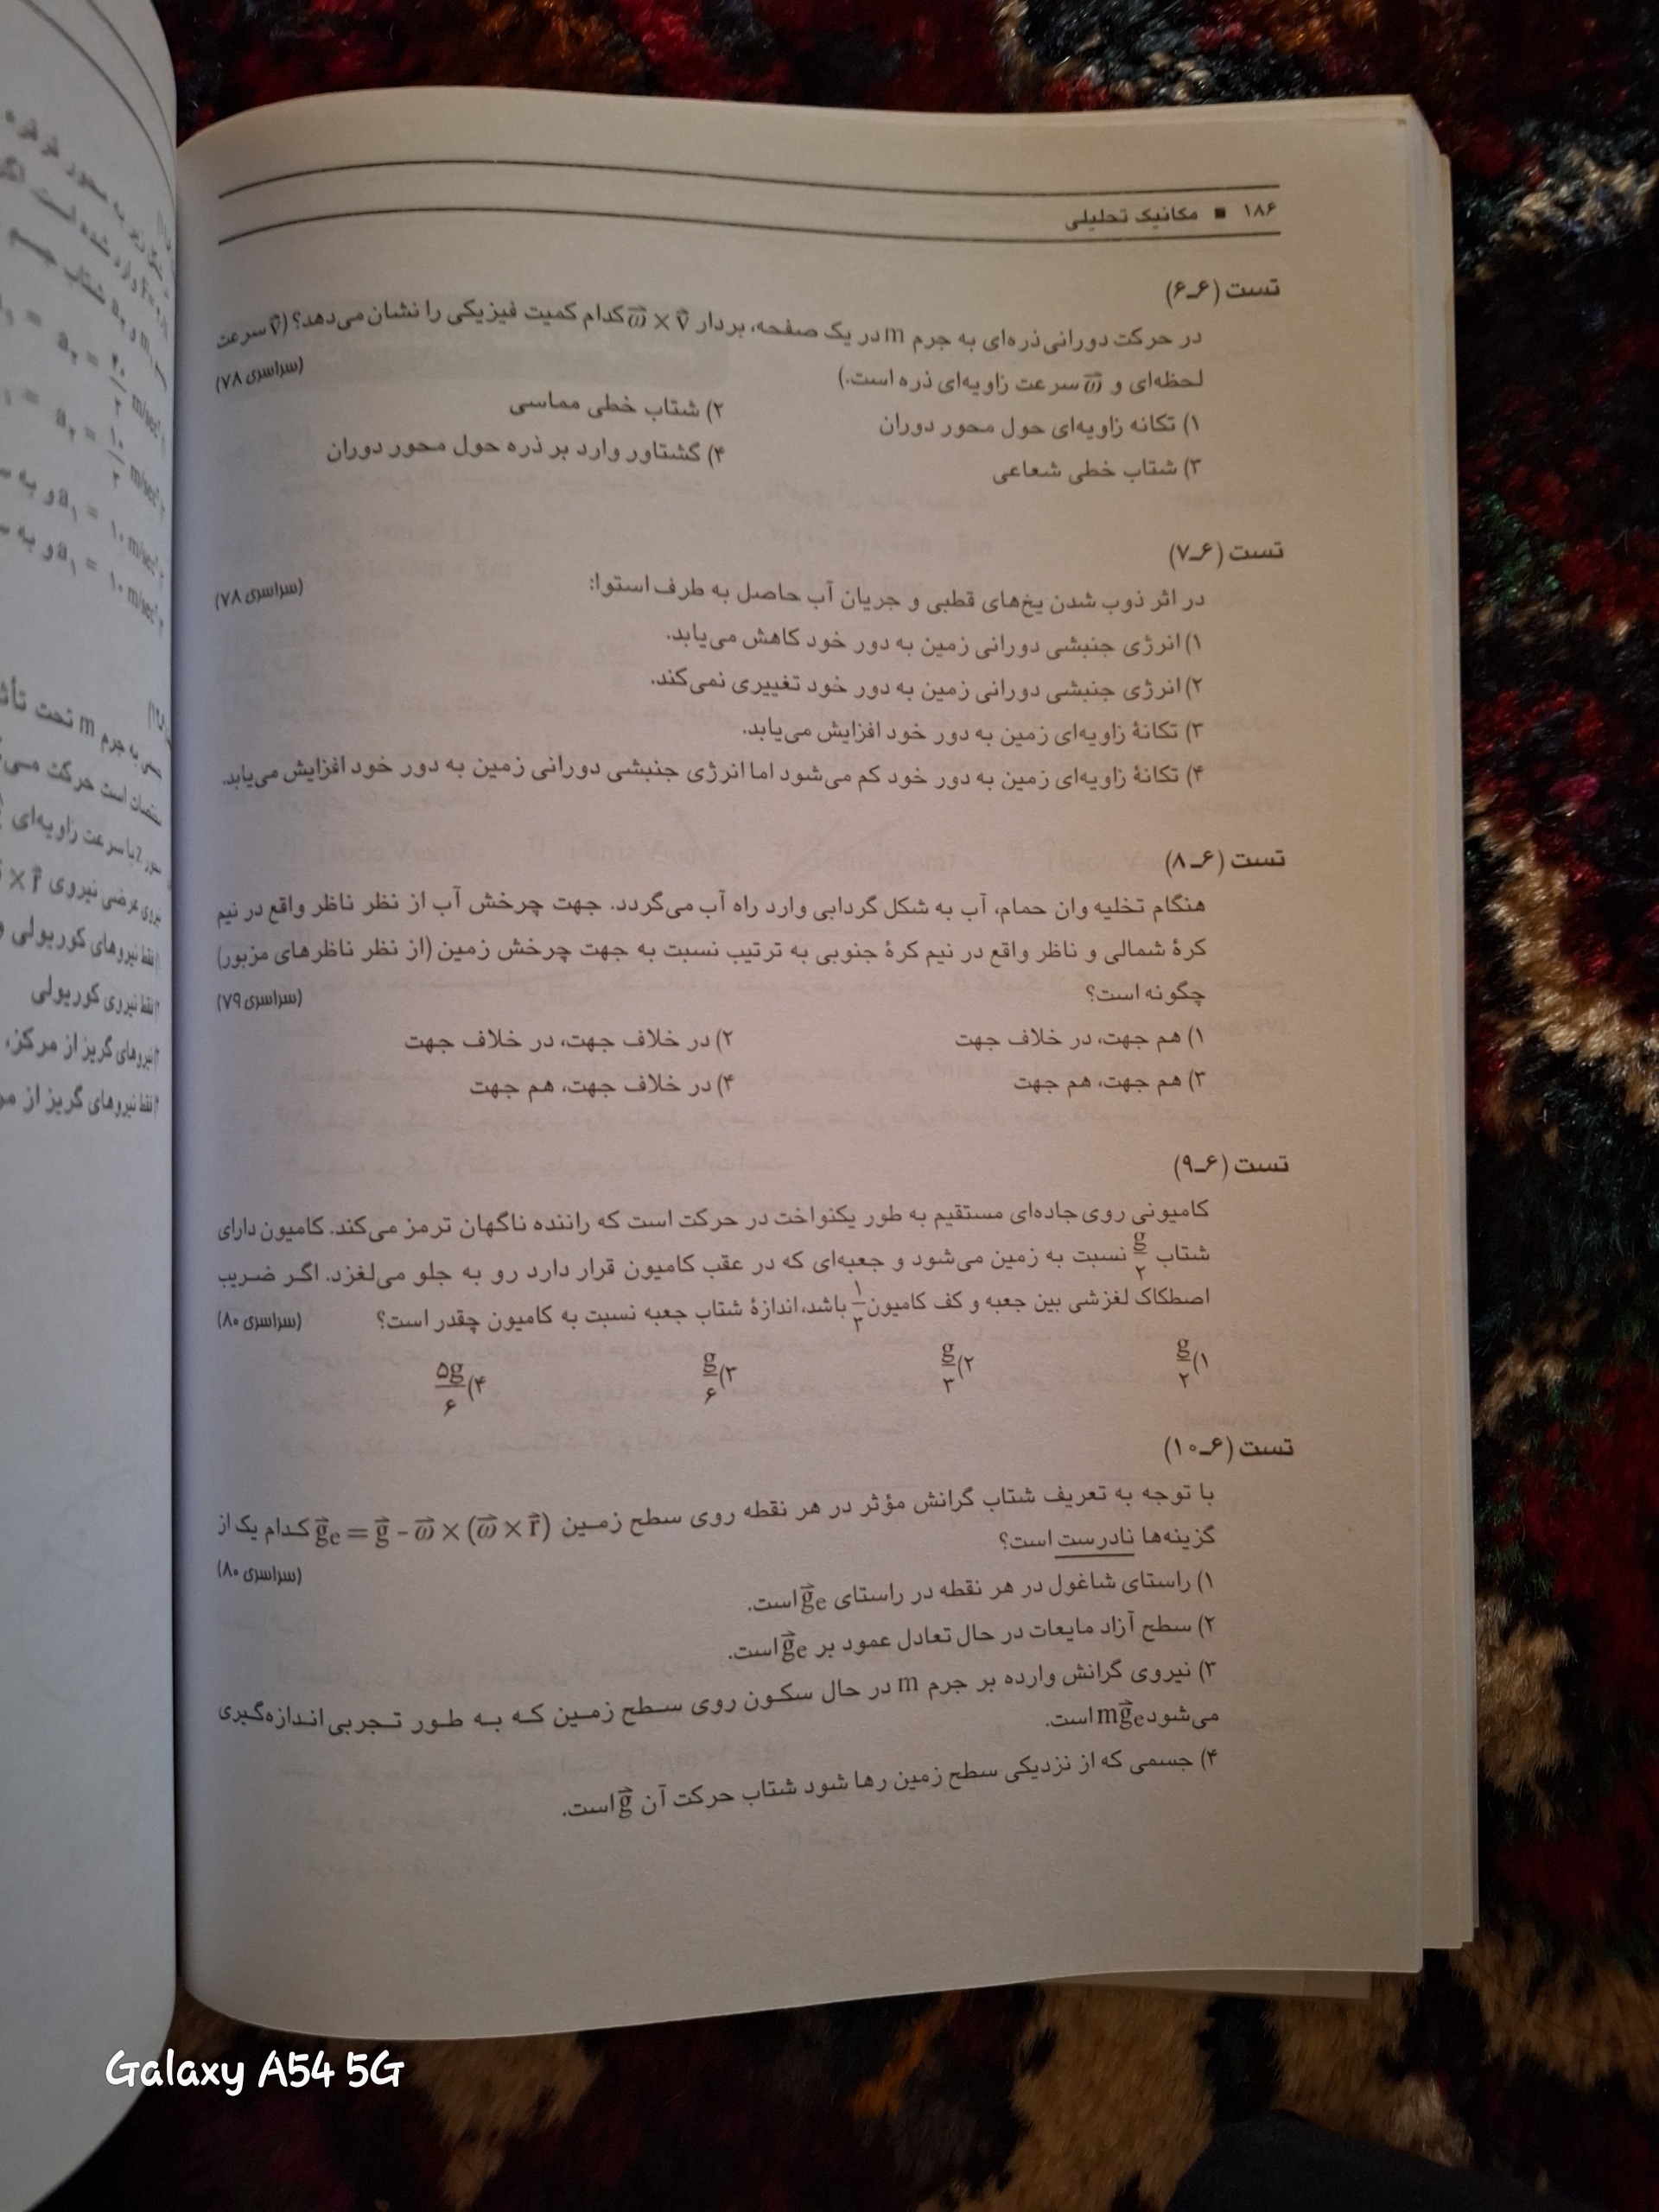 ۱۸۶ ■ مکانیک تحلیلی
تست (۶ـ۶)
در حرکت دورانی ذره‌ای به جرم m در یک صفحه، بردار ω⃗ × v⃗ کدام کمیت فیزیکی را نشان می‌دهد؟ (v⃗ سرعت
لحظه‌ای و ω⃗ سرعت زاویه‌ای ذره است.) (سراسری ۷۸)
۱) تکانه زاویه‌ای حول محور دوران ۲) شتاب خطی مماسی
۳) شتاب خطی شعاعی ۴) گشتاور وارد بر ذره حول محور دوران
تست (۶ـ۷)
در اثر ذوب شدن یخ‌های قطبی و جریان آب حاصل به طرف استوا: (سراسری ۷۸)
۱) انرژی جنبشی دورانی زمین به دور خود کاهش می‌یابد.
۲) انرژی جنبشی دورانی زمین به دور خود تغییری نمی‌کند.
۳) تکانهٔ زاویه‌ای زمین به دور خود افزایش می‌یابد.
۴) تکانهٔ زاویه‌ای زمین به دور خود کم می‌شود اما انرژی جنبشی دورانی زمین به دور خود افزایش می‌یابد.
تست (۶ـ۸)
هنگام تخلیه وان حمام، آب به شکل گردابی وارد راه آب می‌گردد. جهت چرخش آب از نظر ناظر واقع در نیم
کرهٔ شمالی و ناظر واقع در نیم کرهٔ جنوبی به ترتیب نسبت به جهت چرخش زمین (از نظر ناظرهای مزبور)
چگونه است؟ (سراسری ۷۹)
۱) هم جهت، در خلاف جهت ۲) در خلاف جهت، در خلاف جهت
۳) هم جهت، هم جهت ۴) در خلاف جهت، هم جهت
تست (۶ـ۹)
کامیونی روی جاده‌ای مستقیم به طور یکنواخت در حرکت است که راننده ناگهان ترمز می‌کند. کامیون دارای
شتاب g/۲ نسبت به زمین می‌شود و جعبه‌ای که در عقب کامیون قرار دارد رو به جلو می‌لغزد. اگر ضریب
اصطکاک لغزشی بین جعبه و کف کامیون ۱/۳ باشد، اندازهٔ شتاب جعبه نسبت به کامیون چقدر است؟ (سراسری ۸۰)
۱) g/۲ ۲) g/۳ ۳) g/۶ ۴) ۵g/۶
تست (۶ـ۱۰)
با توجه به تعریف شتاب گرانش مؤثر در هر نقطه روی سطح زمین g⃗e = g⃗ - ω⃗ × (ω⃗ × r⃗) کدام یک از
گزینه‌ها نادرست است؟ (سراسری ۸۰)
۱) راستای شاغول در هر نقطه در راستای g⃗e است.
۲) سطح آزاد مایعات در حال تعادل عمود بر g⃗e است.
۳) نیروی گرانش وارده بر جرم m در حال سکون روی سطح زمین که به طور تجربی اندازه‌گیری
می‌شود mg⃗e است.
۴) جسمی که از نزدیکی سطح زمین رها شود شتاب حرکت آن g⃗ است.
Galaxy A54 5G